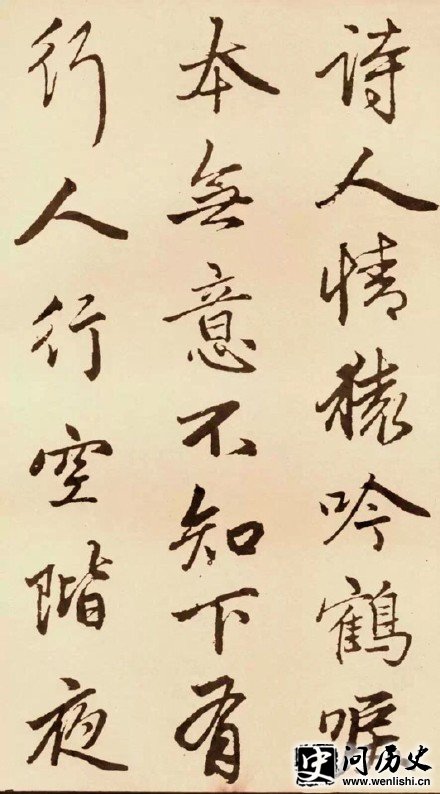 詩人情猿吟鶴唳
本無意不知下有
行人行空階夜
问历史
www.wenlishi.cn